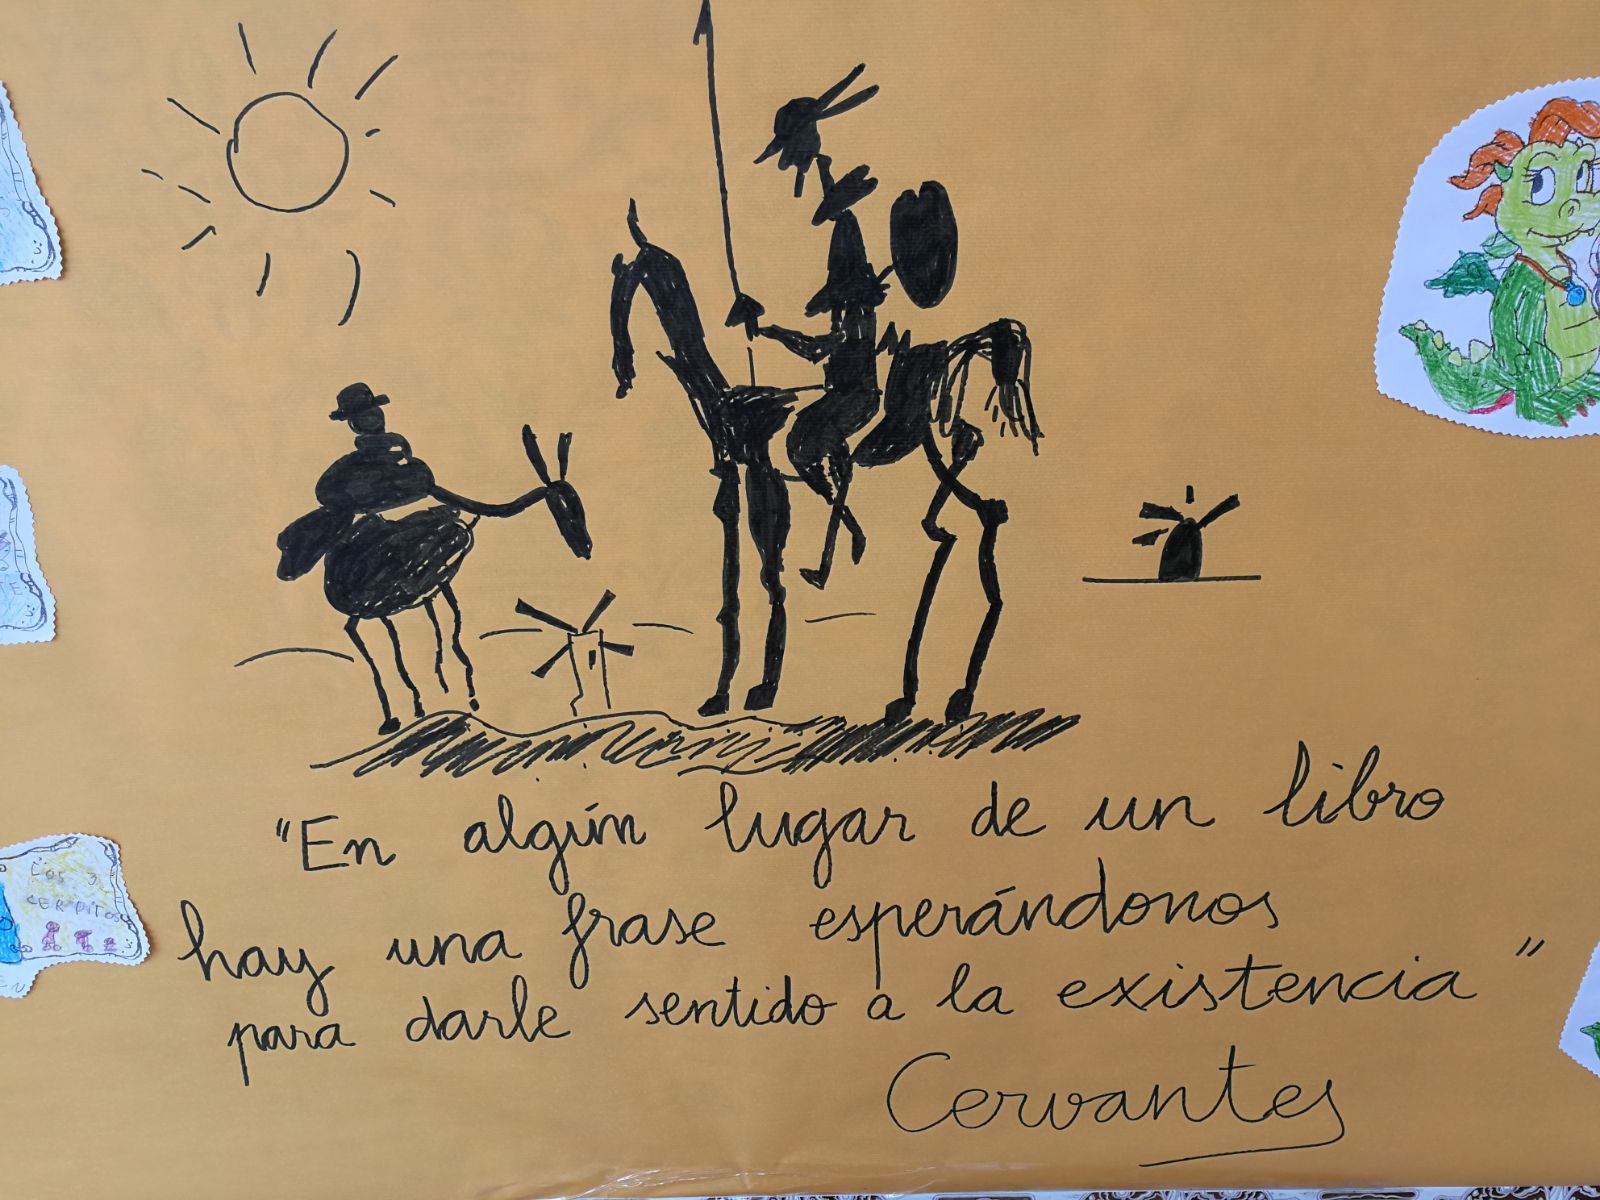 "En algún lugar de un libro
hay una frase esperándonos
para darle sentido a la existencia"
Cervantes
LOS 3
CERDITOS